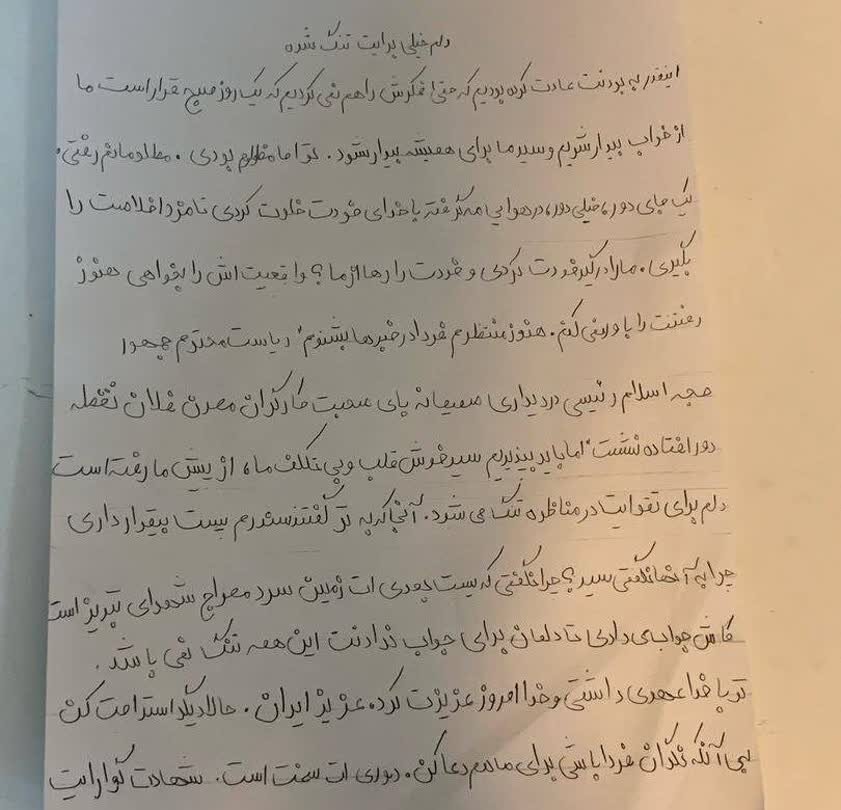 دلم خیلی برایت تنگ شده
اینقدر به بودنت عادت کرده بودیم که حتی فکرش را هم نمی کردیم که یک روز صبح قرار است ما
از خواب بیدار شویم و سید ما برای همیشه بیدار نشود. تو اما مظلوم بودی. مظلومانه رفتی.
یک جای دور، خیلی دور، در هوایی مه گرفته با خدای خودت خلوت کردی تا مزد اخلاصت را
بگیری. ما را درگیر خودت کردی و خودت را رها از ما؟ واقعیت اش را بخواهی هنوز
رفتنت را باور نمی کنم. هنوز منتظرم فردا در خبرها بشنوم "ریاست محترم جمهور
حجه اسلام رئیسی در دیداری صمیمانه پای صحبت کارگران معدن فلان نقطه
دور افتاده نشست" اما باید بپذیریم سید خوش قلب و بی تکلف ما، از پیش ما رفته است
دلم برای تقوایت در مناظره تنگ می شود. آنجا که به تو گفتند سندرم پست بیقرار داری
چرا به آنها نگفتی سید؟ چرا نگفتی که پست بعدی ات زمین سرد معراج شهدای تبریز است
کاش جواب می دادی تا دلمان برای جواب ندادنت این همه تنگ نمی باشد.
تو با خدا عهدی داشتی و خدا امروز عزیزت کرد، عزیز ایران. حالا دیگر استراحت کن
بی آنکه نگران فردا باشی برای ما هم دعا کن. دوری ات سخت است. شهادت گوارایت